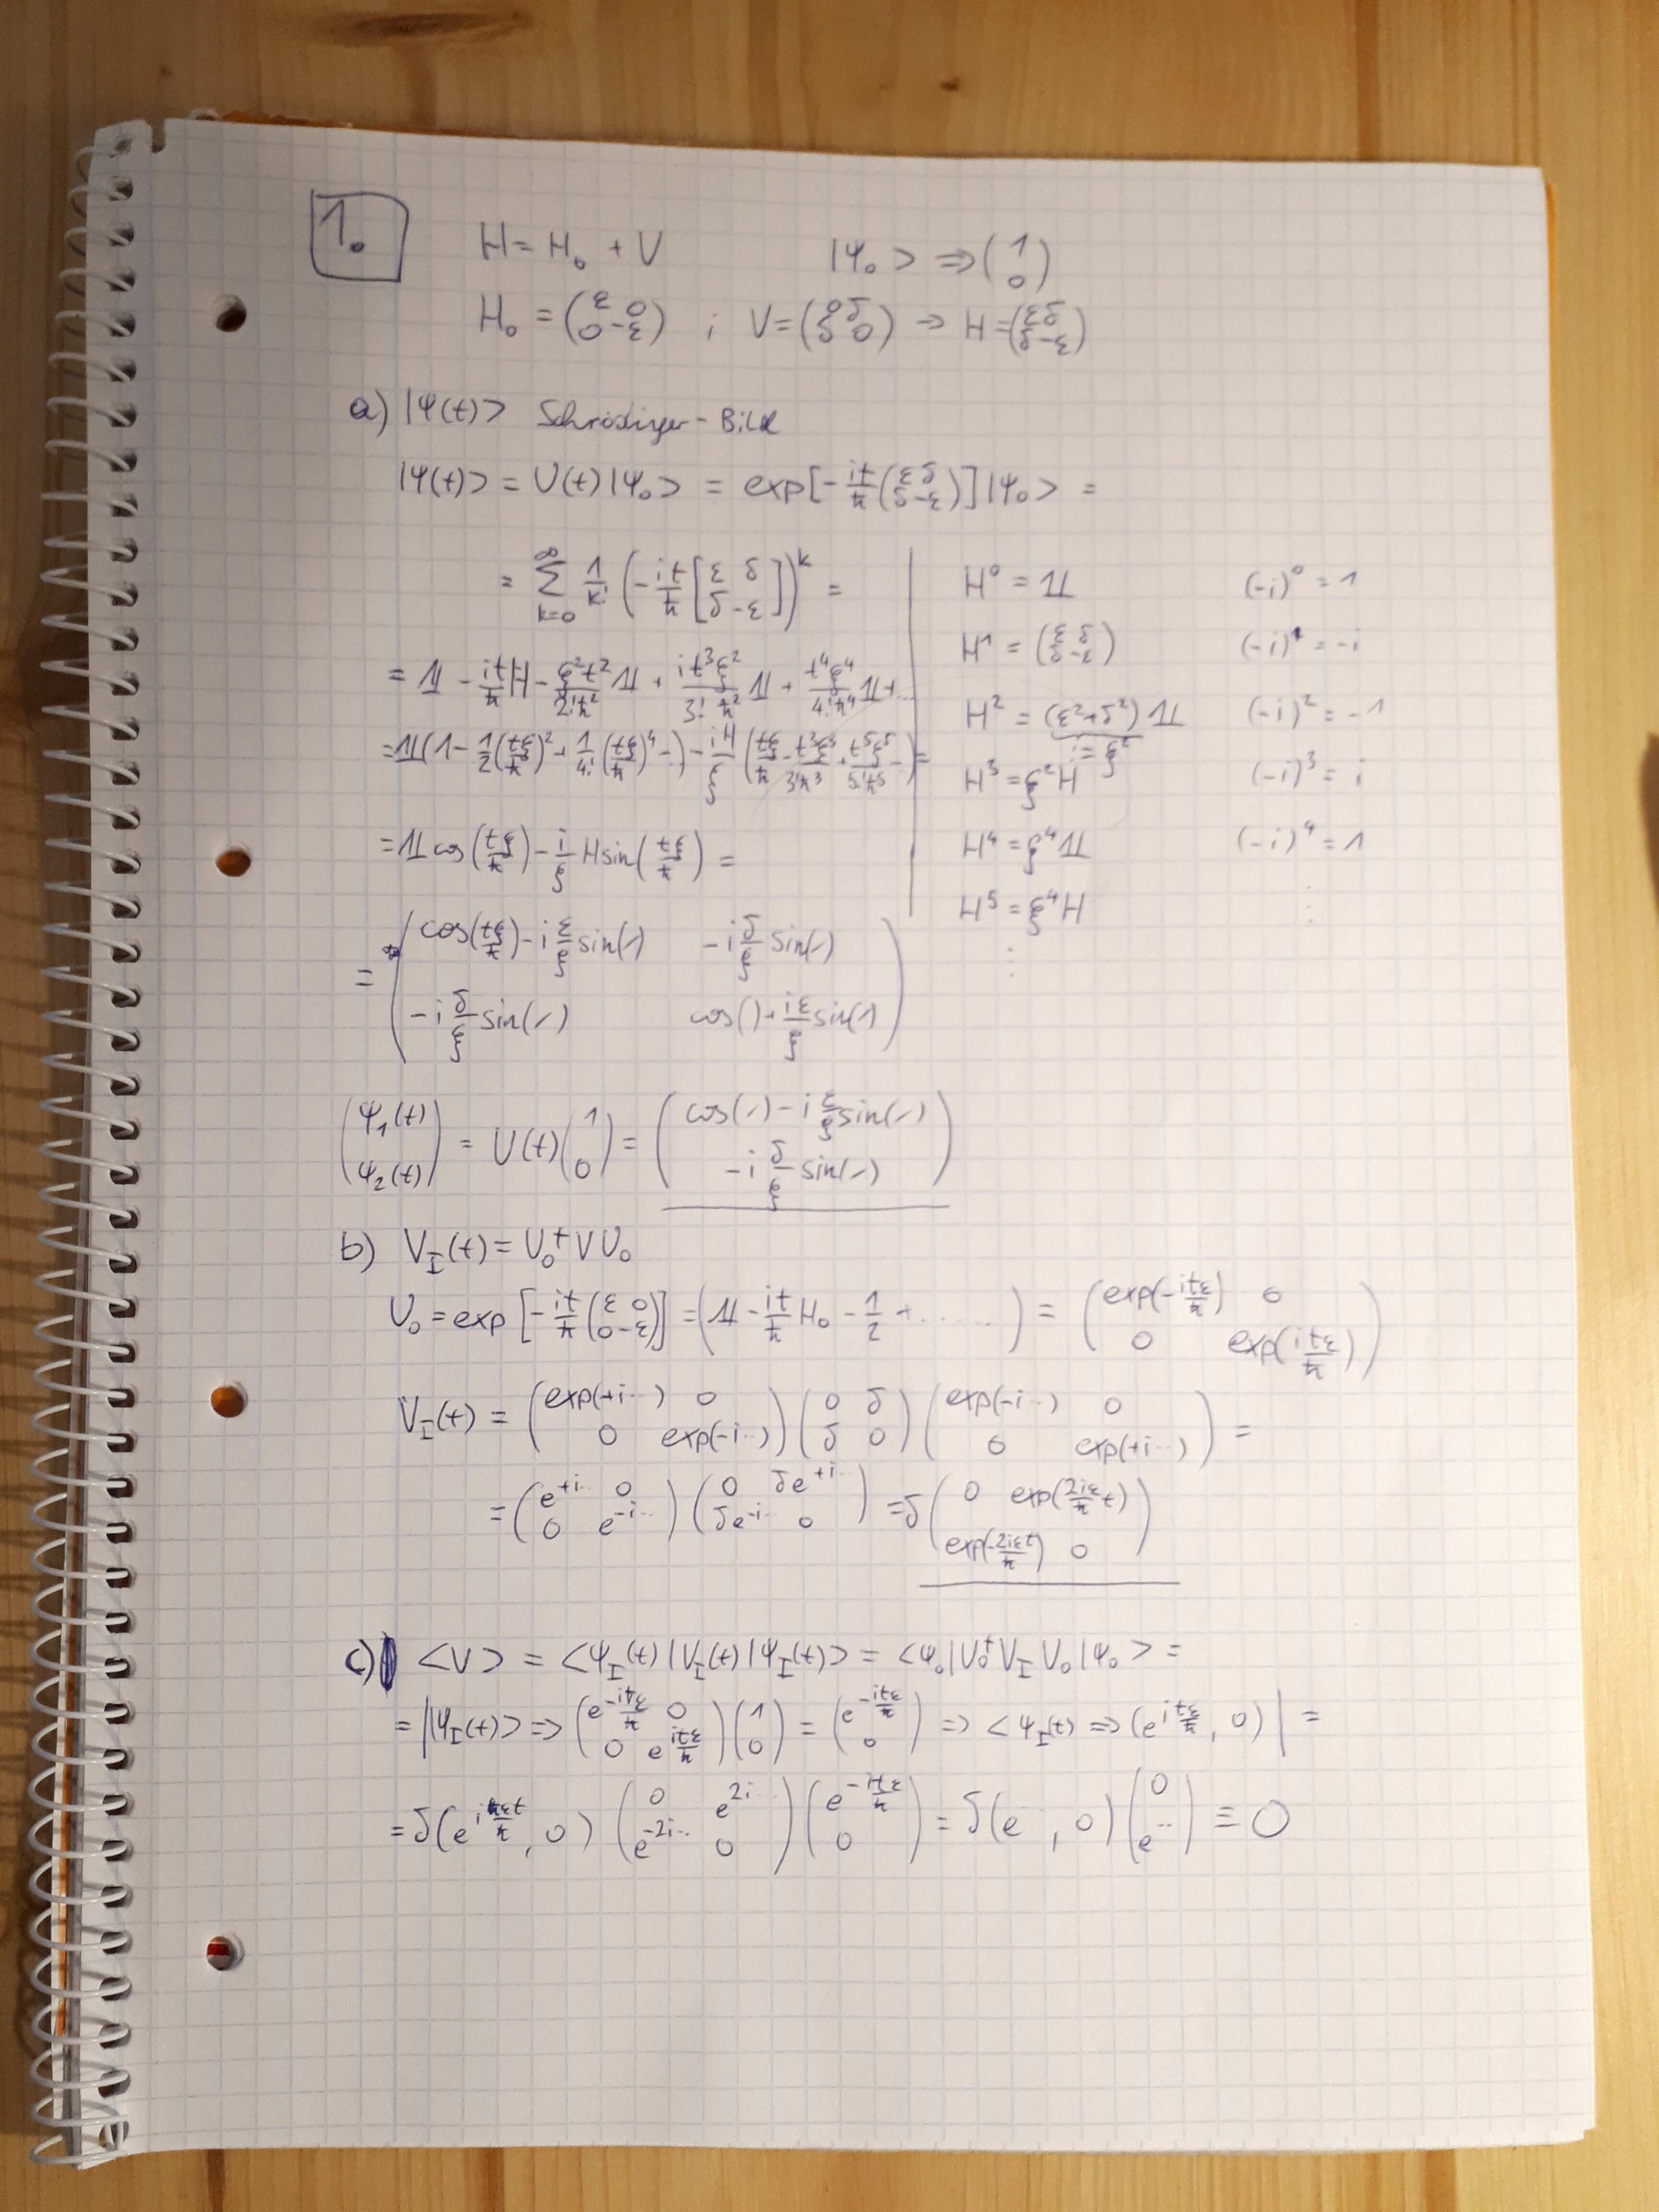 1.
H = H₀ + V |Ψ₀> ⇒ (1 0)
H₀ = (ε 0 0 -ε) ; V = (0 δ δ 0) → H = (ε δ δ -ε)
a) |Ψ(t)> Schrödinger-Bild
|Ψ(t)> = U(t)|Ψ₀> = exp[-it/ħ (ε δ δ -ε)]|Ψ₀> =
= ∑_{k=0}^{∞} 1/k! (-it/ħ [ε δ δ -ε])^k =
= 𝟙 - it/ħ H - ξ²t²/2!ħ² 𝟙 + it³ξ²/3!ħ² 𝟙 + t⁴ξ⁴/4!ħ⁴ 𝟙 + ...
= 𝟙(1 - 1/2(tξ/ħ)² + 1/4!(tξ/ħ)⁴ - ..) - iH/ξ (tξ/ħ - t³ξ³/3!ħ³ + t⁵ξ⁵/5!ħ⁵ - ..) =
= 𝟙 cos(tξ/ħ) - i/ξ H sin(tξ/ħ) =
= (cos(tξ/ħ) - i ε/ξ sin(〃) -i δ/ξ sin(〃)
-i δ/ξ sin(〃) cos() + iε/ξ sin(〃))
H⁰ = 𝟙 (-i)⁰ = 1
H¹ = (ε δ δ -ε) (-i)¹ = -i
H² = (ε² + δ²) 𝟙 (-i)² = -1
:= ξ²
H³ = ξ²H (-i)³ = i
H⁴ = ξ⁴𝟙 (-i)⁴ = 1
H⁵ = ξ⁴H ⋮
⋮
(Ψ₁(t) Ψ₂(t)) = U(t)(1 0) = (cos(〃) - i ε/ξ sin(〃) -i δ/ξ sin(〃))
b) V_I(t) = U₀†VU₀
U₀ = exp[-it/ħ (ε 0 0 -ε)] = (𝟙 - it/ħ H₀ - 1/2 + ......) = (exp(-itε/ħ) 0 0 exp(itε/ħ))
V_I(t) = (exp(+i..) 0 0 exp(-i..)) (0 δ δ 0) (exp(-i..) 0 0 exp(+i..)) =
= (e^{+i..} 0 0 e^{-i..}) (0 δe^{+i..} δe^{-i..} 0) = δ(0 exp(2iε/ħ t) exp(-2iεt/ħ) 0)
c) <V> = <Ψ_I(t)|V_I(t)|Ψ_I(t)> = <Ψ₀|U₀†V_I U₀|Ψ₀> =
= | |Ψ_I(t)> ⇒ (e^{-itε/ħ} 0 0 e^{itε/ħ}) (1 0) = (e^{-itε/ħ} 0) ⇒ <Ψ_I(t) ⇒ (e^{itε/ħ}, 0) | =
= δ(e^{iεt/ħ}, 0) (0 e^{2i..} e^{-2i..} 0) (e^{-itε/ħ} 0) = δ(e , 0) (0 e^{..}) = 0